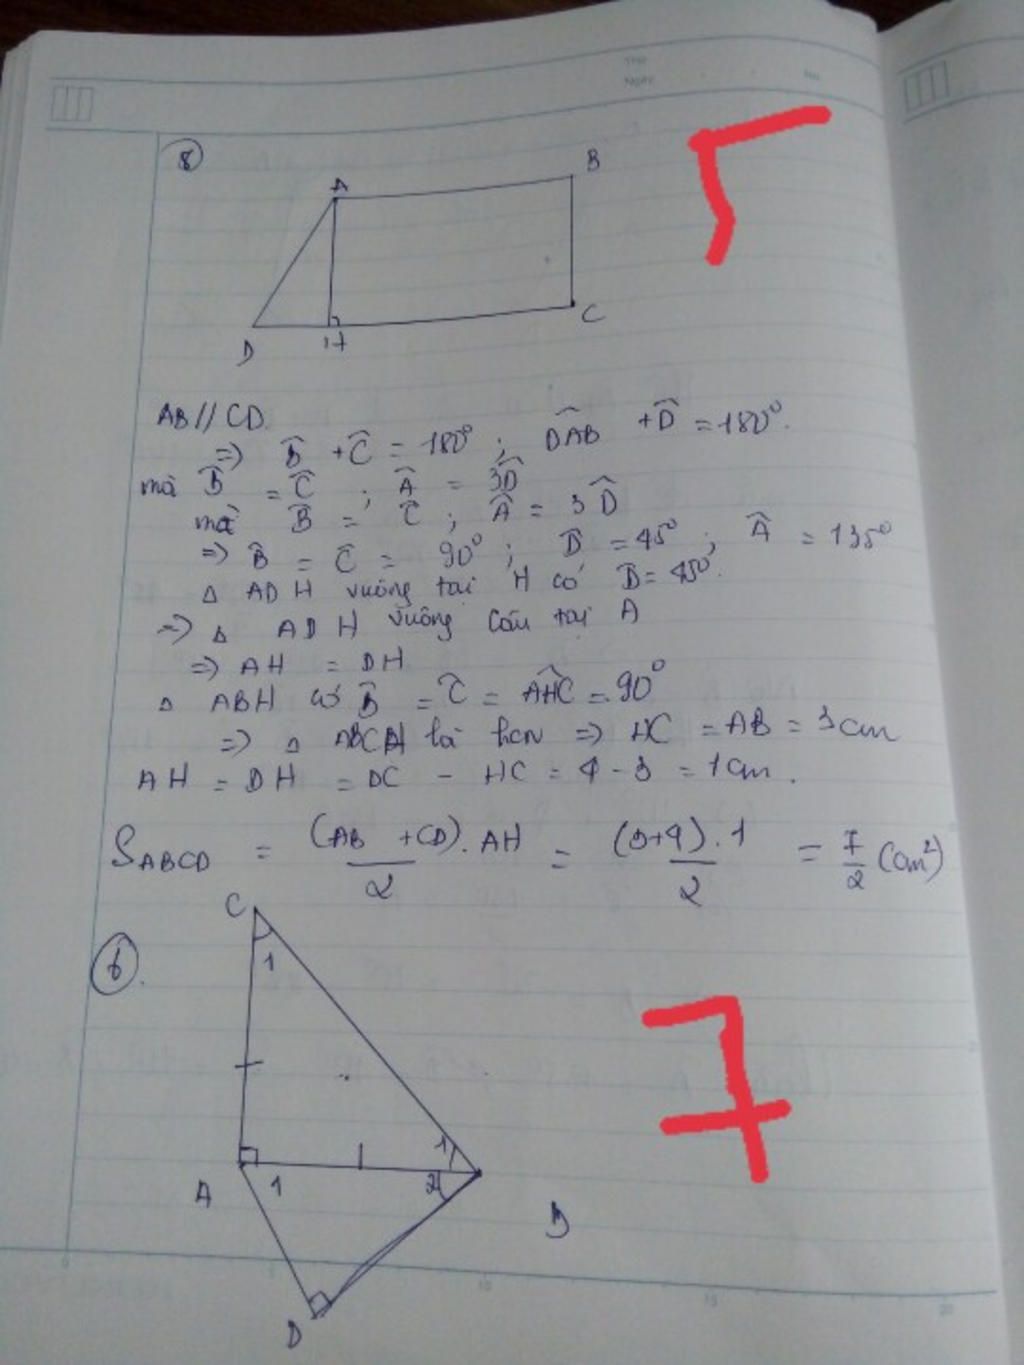 8
5
A
B
D
H
C
AB // CD
=> B̂ + Ĉ = 180° ; DAB̂ + D̂ = 180°.
mà B̂ = Ĉ ; Â = 3D̂
mà B̂ = Ĉ ; Â = 3D̂
=> B̂ = Ĉ = 90° ; D̂ = 45° ; Â = 135°
Δ ADH vuông tại H có D̂ = 450.
=> Δ ADH vuông cân tại A
=> AH = DH
Δ ABH có B̂ = Ĉ = AHĈ = 90°
=> Δ ABCH là hcn => HC = AB = 3cm
AH = DH = DC - HC = 4 - 3 = 1cm.
S_ABCD = (AB + CD).AH / 2 = (3+4).1 / 2 = 7/2 (cm²)
6.
7
C
1
1
A 1 2
B
D